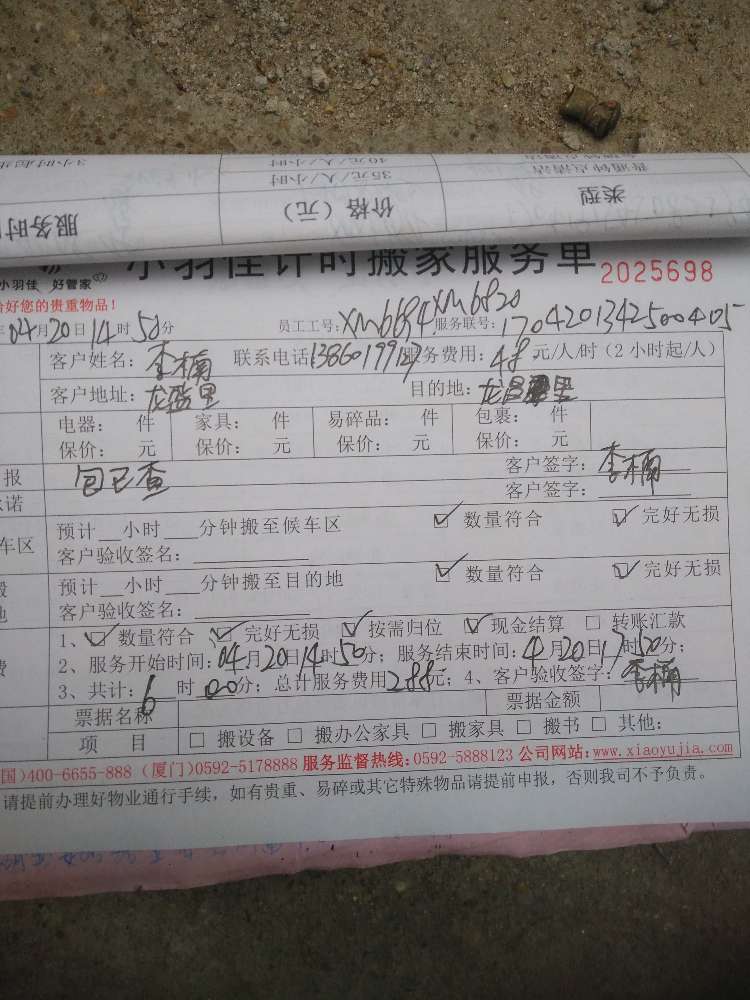 3小时起步
40元/人/小时
普通钟点清洁
35元/人/小时
服务时
价格（元）
类型
小羽佳计时搬家服务单
2025698
小羽佳 好管家
好您的贵重物品！
04月20日14时50分 员工工号：XM6684 XM6820 服务联号：1704201342500405
客户姓名：李楠 联系电话 服务费用：48元/人/时（2小时起/人）
客户地址： 目的地：
电器： 件 家具： 件 易碎品： 件 包裹： 件
保价： 元 保价： 元 保价： 元 保价： 元
报 包已查 客户签字：李楠
诺 客户签字：
车区 预计__小时___分钟搬至候车区 ☑ 数量符合 ☑ 完好无损
客户验收签名：
预计__小时___分钟搬至目的地 ☑ 数量符合 ☑ 完好无损
地 客户验收签名：
费 1、☑ 数量符合 ☑ 完好无损 ☑ 按需归位 ☑ 现金结算 □ 转账汇款
2、服务开始时间：04月20日14时50分；服务结束时间：4月20日17时50分；
3、共计：6时00分；总计服务费用288元；4、客户验收签字：李楠
票据名称 票据金额
项 目 □ 搬设备 □ 搬办公家具 □ 搬家具 □ 搬书 □ 其他：
国)400-6655-888 (厦门)0592-5178888 服务监督热线:0592-5888123 公司网站:www.xiaoyujia.com
请提前办理好物业通行手续，如有贵重、易碎或其它特殊物品请提前申报，否则我司不予负责。